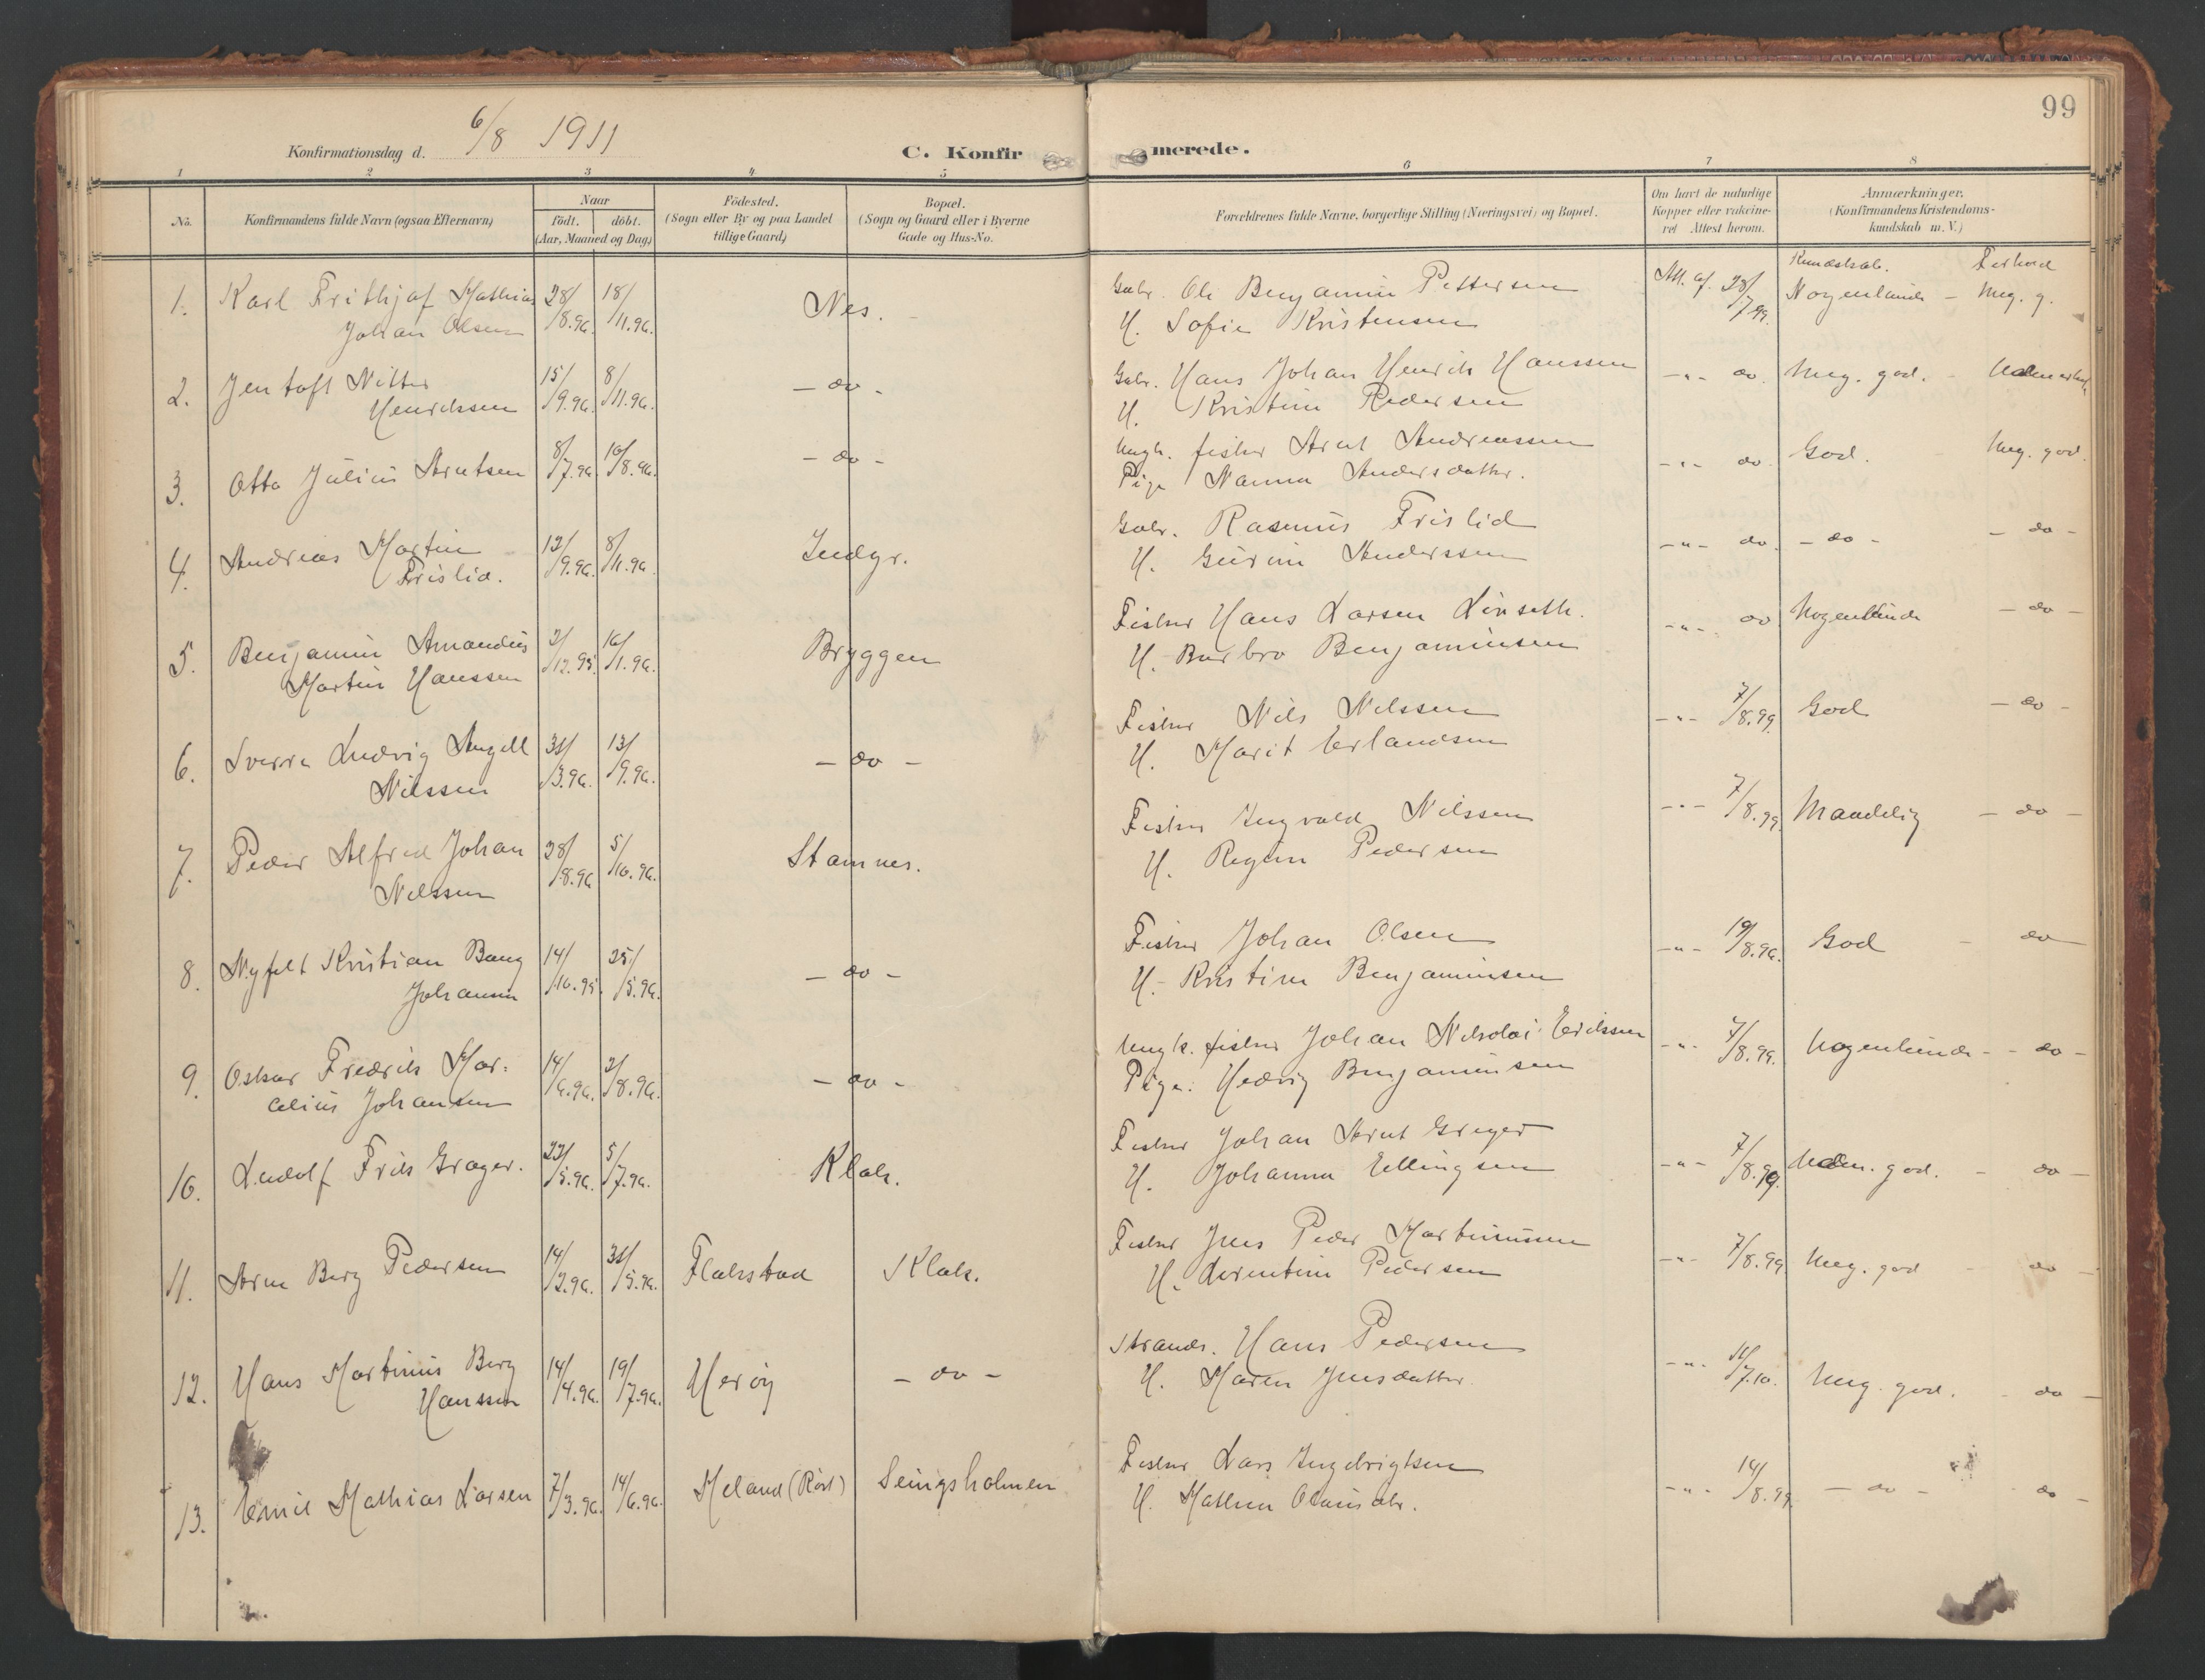 99
Konfirmationsdag d. 6/8 1911
C. Konfirmerede.
1 2 3 4 5 6 7 8
No.
Konfirmandens fulde Navn (ogsaa Efternavn)
Naar
født. døbt.
(Aar, Maaned og Dag)
Fødested.
(Sogn eller By og paa Landet
tillige Gaard)
Bopæl.
(Sogn og Gaard eller i Byerne
Gade og Hus-No.
Forældrenes fulde Navne, borgerlige Stilling (Næringsvei) og Bopæl.
Om havt de naturlige
Kopper eller vakcine-
ret Attest herom.
Anmærkninger.
(Konfirmandens Kristendoms-
kundskab m. V.)
Kundskab. Forhold
1. Karl Frithjof Mathias 28/8.96. 18/11.96. Nes. Gbr. Ole Benjamin Pettersen Att. af 28/7 99. Nogenlunde - Meg. g.
Johan Olsen H. Sofie Kristensen
2. Jentoft Nitter 15/9.96. 8/11.96. - do - Gbr. Hans Johan Henrik Hanssen -"- do. Meg. god. -
Henrikssen H. Kristine Pedersen
3. Otto Julius Arntsen 8/7.96. 16/8.96. - do - Ungk. fisker Arnt Andreassen -"- do. God. Meg. god.
Pige Nanna Andersdatter.
4. Andreas Martin 12/9.96. 8/11.96. Indyr. Gbr. Rasmus Frislid -"- do. - do - - do -
Frislid. H. Gurine Anderssen
5. Benjamin Amandus 2/12.95. 16/1.96. Bryggen Fisker Hans Larsen Linseth. -"- do Nogenlunde - do -
Martin Hanssen H. Barbro Benjaminsen
6. Sverre Ludvig Angell 31/3.96. 13/9.96. - do - Fisker Nils Nilssen -"- 7/8.99. God - do -
Nilssen H. Marit Erlandsen
7. Peder Alfred Johan 28/8.96 5/10.96. Stamnes. Fisker Ingvald Nilssen -"- 7/8.99. Maadelig - do -
Nilssen H. Regine Pedersen
8. Nyfelt Kristian Bang 14/10.95. 25/5.96. - do - Fisker Johan Olsen -"- 19/8.96. God - do -
Johansen H. Kristine Benjaminsen
9. Oskar Fredrik Mar- 14/6.96. 2/8.96. - do - Ungk. fisker Johan Nikolai Erikssen -"- 7/8.99. Nogenlunde - - do -
celius Johansen Pige. Hedvig Benjaminsen
10. Ludolf Friis Grøger. 23/5.96. 5/7.96. Klak. Fisker Johan Arnt Greger -"- 7/8.99. god. - do -
H. Johanna Ellingsen
11. Arne Berg Pedersen 14/2.96. 31/5.96. Flakstad Klak. Fisker Jens Peder Martinussen -"- 7/8.99. Meg. god - do -
H. Lorentine Pedersen
12. Hans Martinus Berg 14/4.96. 19/7.96. Herøy - do - Strands. Hans Pedersen -"- 11/7.10. Meg. god. - do -
Hanssen H. Maren Jensdatter
13. Emil Mathias Larsen 7/3.96. 14/6.96. Meland (Røst) Seingsholmen Fisker Lars Ingebrigtsen -"- 14/8.99. - do - - do -
H. Mathea Olausdtr.